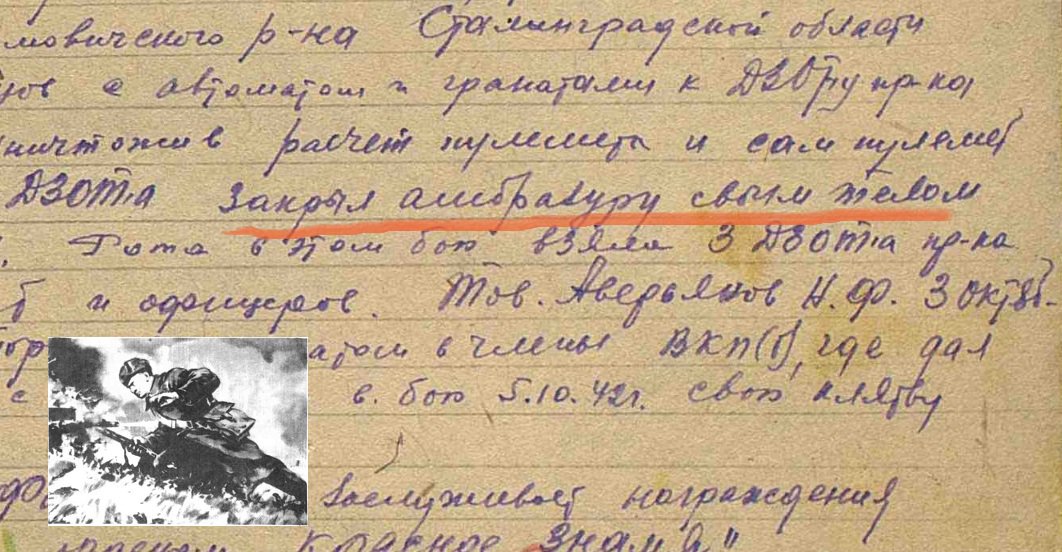 мовичского р-на Сталинградской области
с автоматом и гранатами к ДЗОТу пр-ка
уничтожив расчет пулемета и сам пулемет
ДЗОТ-а закрыл амбразуру своим телом
Рота в этом бою взяла 3 ДЗОТ-а пр-ка
б и офицеров. Тов. Аверьянов Н.Ф. 3 октяб.
атом в члены ВКП(б), где дал
с в бою 5.10.42г. свою клятву
Заслуживает награждения
Красное Знамя"